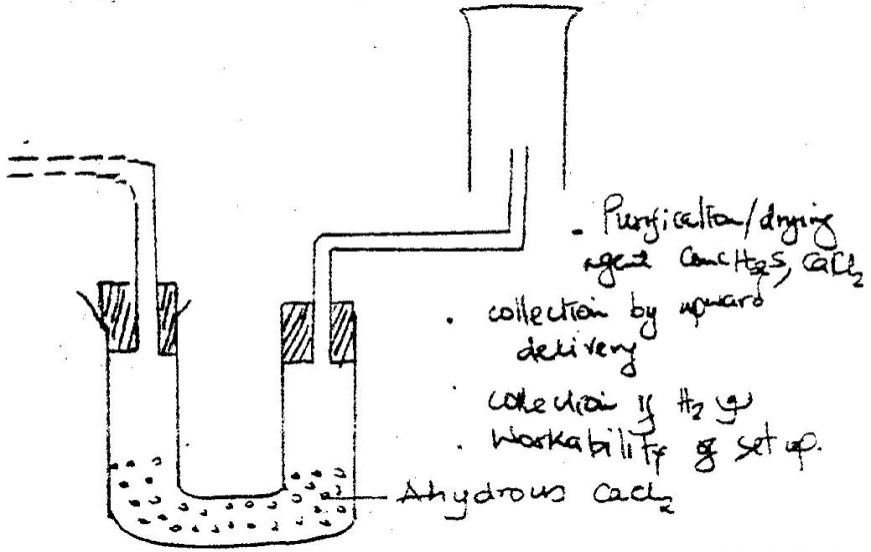 - Purification/drying
agent Conc H2S, CaCl2
. collection by upward
delivery
collection if H2 g
. Workability of set up.
Ahydrous CaCl2